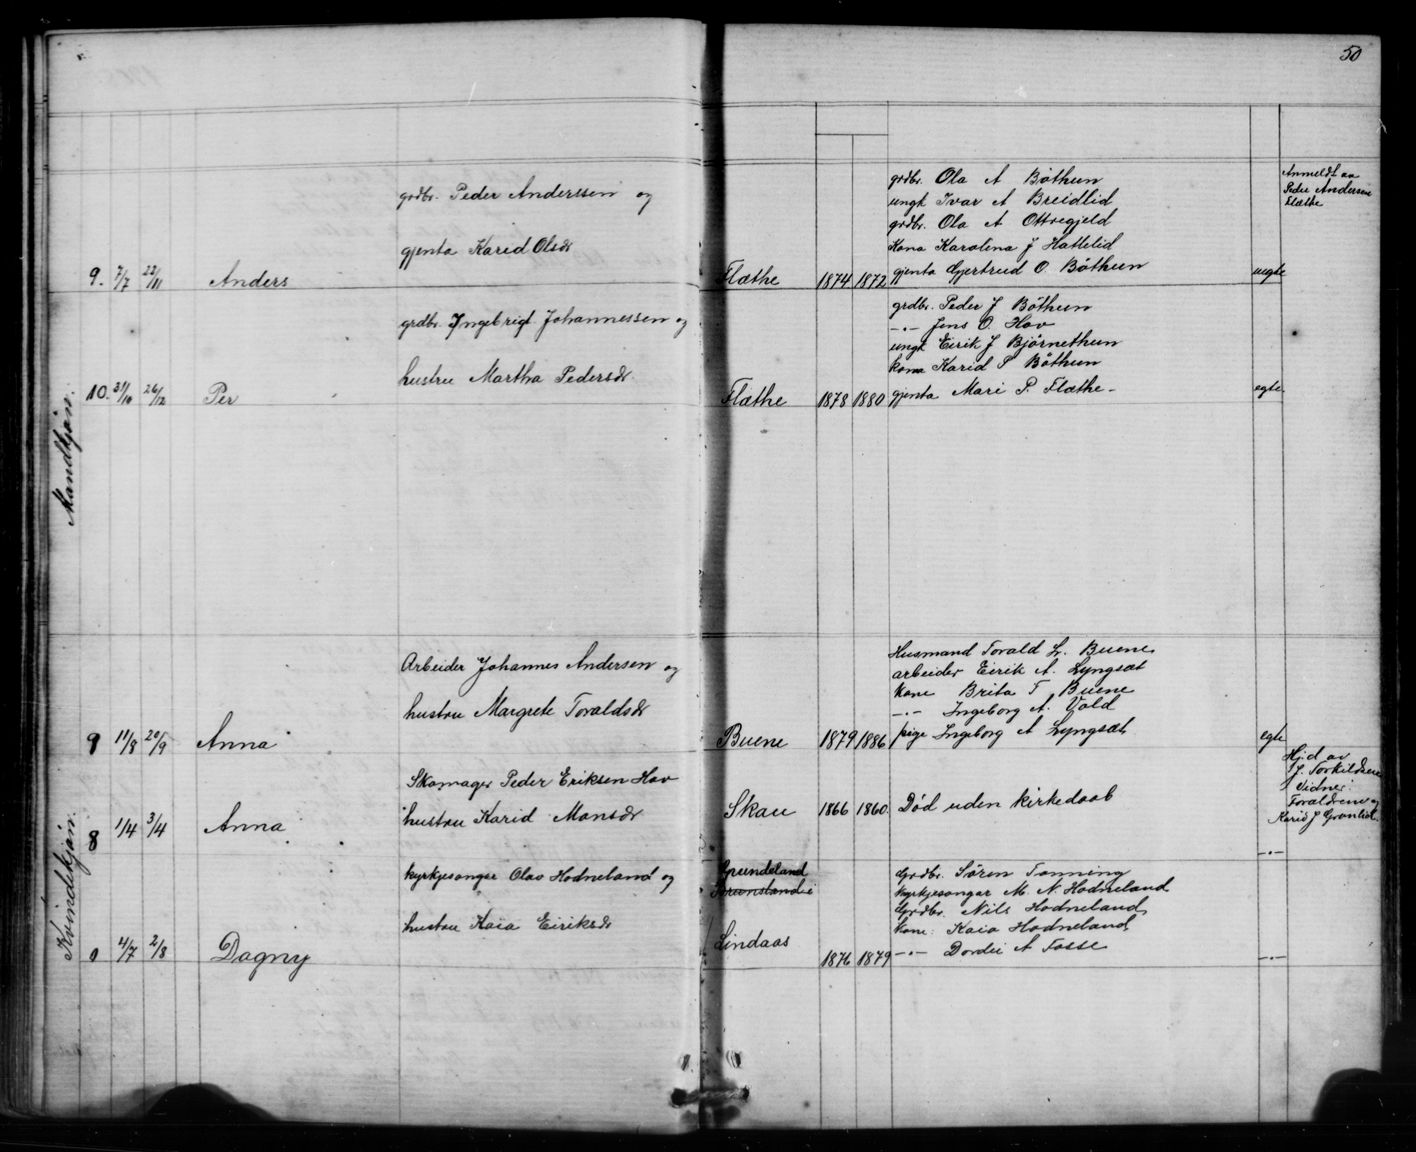 50
Mandkjøn.
9. 7/7 22/11 Anders
grdbr. Peder Anderssen og
gjenta Karid Olsdr
Flæthe 1874 1872
grdbr. Ola A Bøthun
ungk Ivar A Breidlid
grdbr. Ola A Ottregjeld
Kona Karolina J Hattelid
gjenta Gjertrud O. Bøthun
uegte
Anmeldt av
Peder Andersen
Flæthe
10. 31/10 26/12 Per
grdbr. Ingebrigt Johannessen og
hustru Martha Pedersdr.
Flæthe 1878 1880
grdbr. Peder J Bøthun
—"— Jens O. Hov
ungk Eirik J Bjørnethun
kona Karid P Bøthun
gjenta Mari P. Flæthe
egte
Kvindekjøn.
9 11/8 20/9 Anna
Arbeider Johannes Andersen og
hustru Margrete Toraldsdr
Buene 1879 1886
Husmand Torald L. Buene
arbeider Eirik A. Lyngsæt
kone Brita T Buene
—"— Ingeborg A. Vold
pige Ingeborg A Lyngsæt
egte
8 1/4 3/4 Anna
Skomager Peder Eriksen Hov
hustru Karid Monsdr
Skau 1866 1860.
Død uden kirkedaab
Hj.d av
J. Torkildsen
Vidner:
Forældrene og
Karid J Grønlid.
—"—
4/7 2/8 Dagny
kyrkjesongar Olav Hodneland og
hustru Kaia Eiriksdr
Grundeland
Brunsland i
Lindaas
1876 1879
Grdbr. Søren Tonning
kyrkjesongar M. N. Hodneland
Grdbr. Nils Hodneland
kone: Kaia Hodneland
—"— Dordei A Fosse
—"—